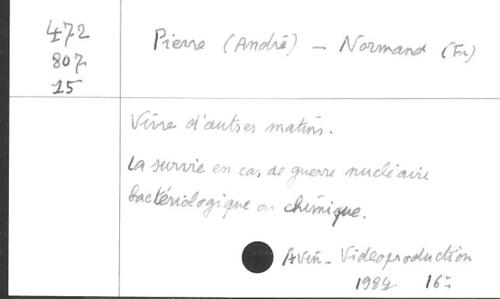 472
807
15
Pierre (André) - Normand (Fr)
Vivre d'autres matins.
La survie en cas de guerre nucléaire
bactériologique ou chimique.
Avin - Videoproduction
1984 16°